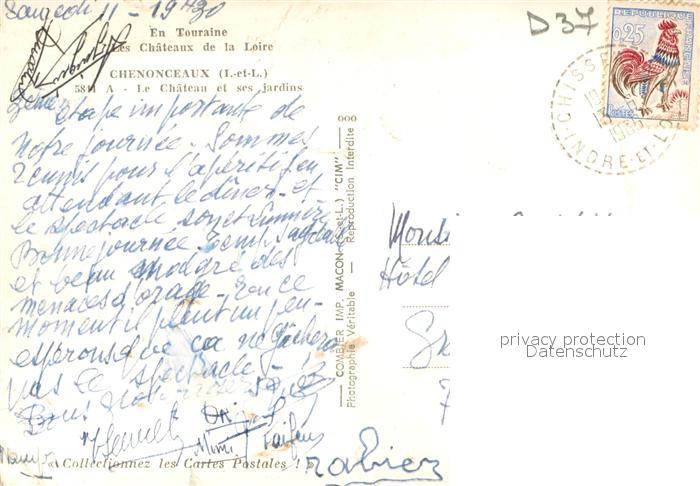 Samedi 11 - 19H30
D37
En Touraine
Les Châteaux de la Loire
CHENONCEAUX (I.-et-L.)
5811 A - Le Château et ses jardins
REPUBLIQUE FRANÇAISE
0,25
CHISS
INDRE-ET-L
étape importante de
notre journée. Sommes
réunis pour l'apéritif en
attendant le dîner - et
le spectacle son et lumière
Bonne journée. temps
et beau malgré des
menaces d'orage - En ce
moment il pleut un peu -
espérons que ça ne gâchera
pas le spectacle -
Bons
Mimi
« Collectionnez les Cartes Postales ! »
COMBIER IMP. MACON (S.-et-L.) "CIM"
Photographie Véritable — Reproduction Interdite
Hôtel
privacy protection
Datenschutz